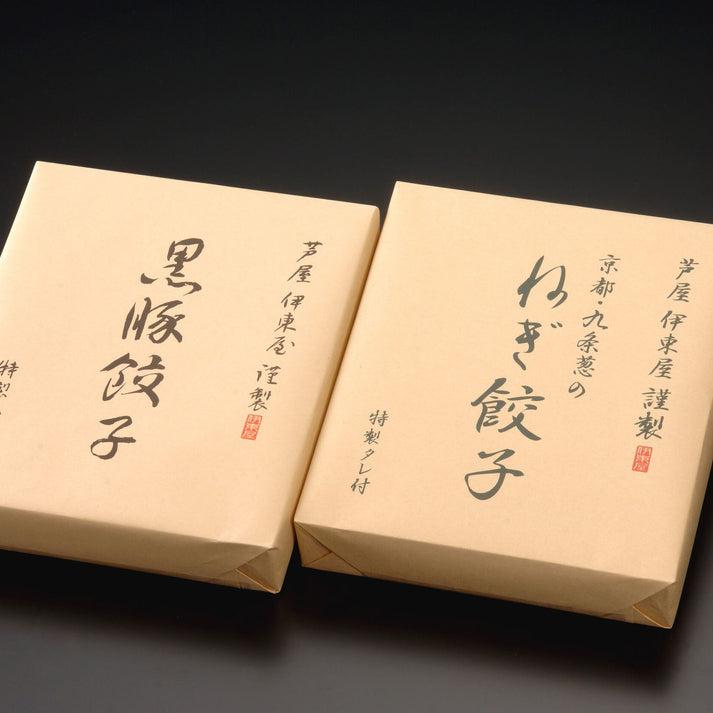 芦屋 伊東屋 謹製
伊東屋
黒豚餃子
特製
芦屋 伊東屋 謹製
伊東屋
京都・九条葱の
ねぎ餃子
特製タレ付